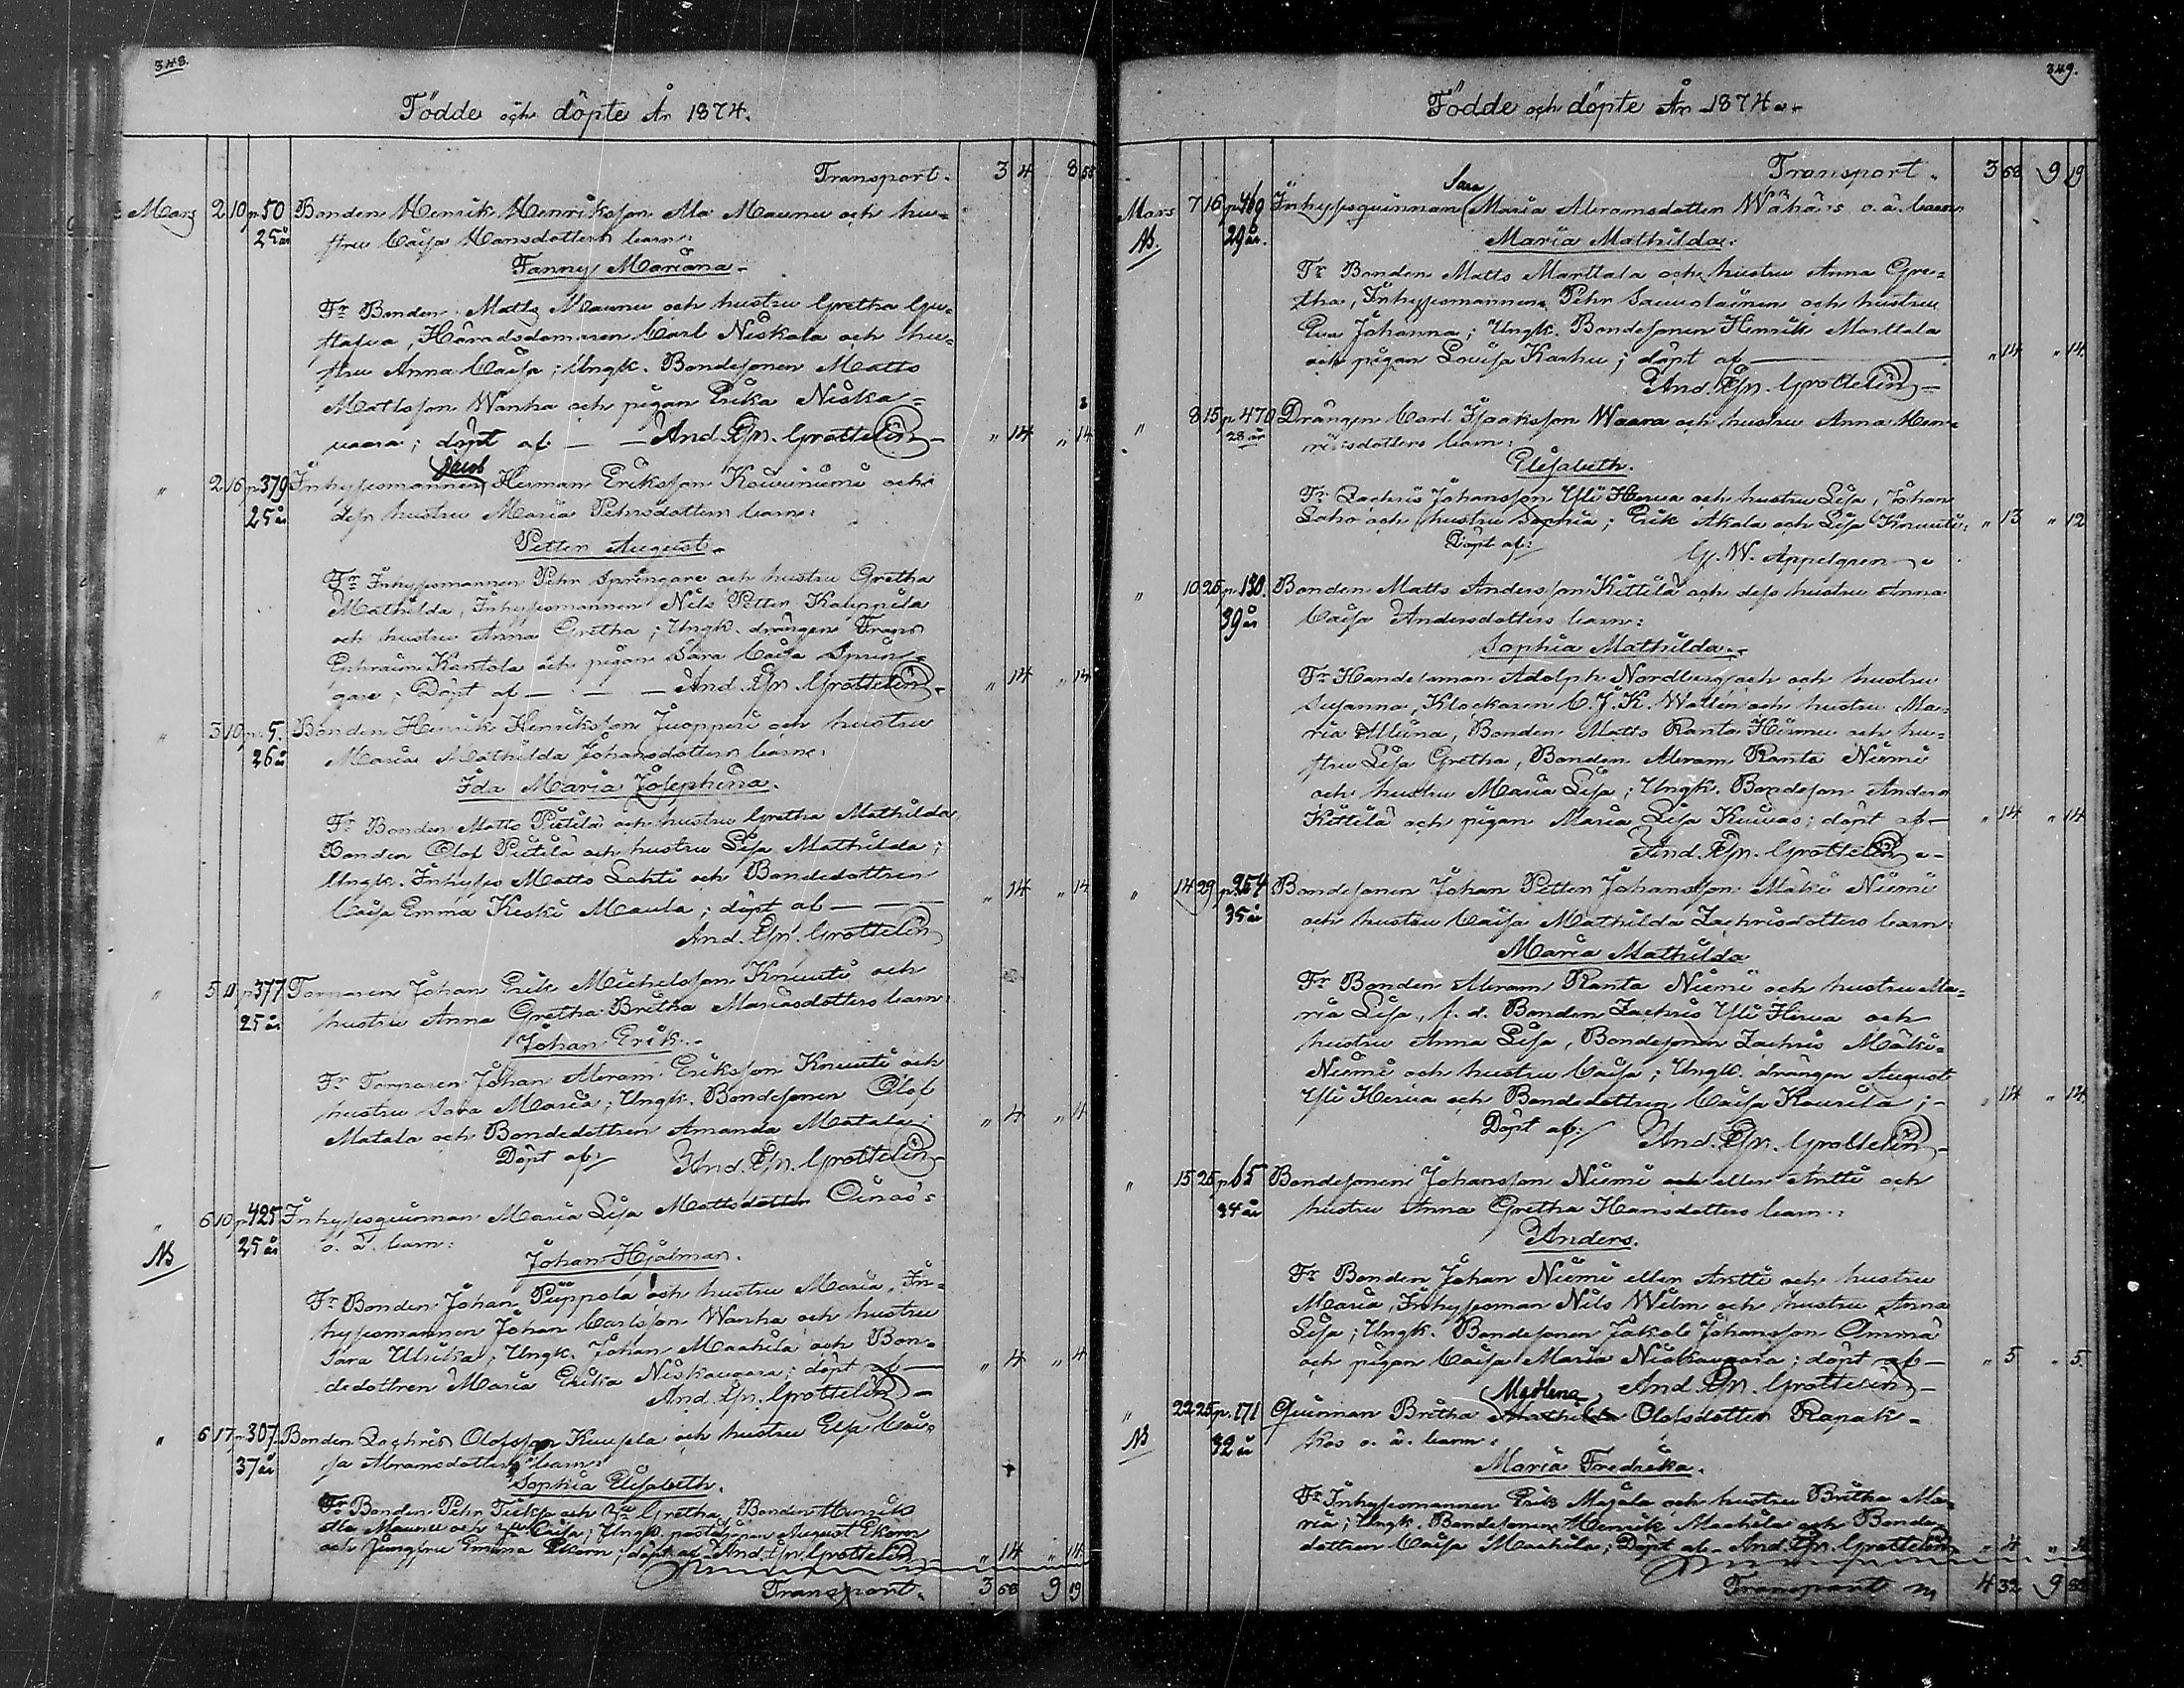 348.
Födde och döpte År 1874.
Transport. 3 4 8 55
Mars 2 10 p. 50 Bonden Henrik Henriksson Ala Maunu och hu-
25 år stru Caisa Hansdotters barn:
Fanny Mariana.
Fr. Bonden Matts Maunu och hustru Gretha Gu-
stafva, Häradsdomaren Carl Niskala och hu-
stru Anna Caisa; Ungk. Bondesonen Matts
Mattsson Wanha och pigan Erika Niska-
vaara; döpt af — And. Joh. Grottelin " 14 " 14
" 2 16 p 379 Inhysesmannen Jacob Herman Eriksson Koivuniemi och
25 år dess hustru Maria Pehrsdotters barn:
Petter August.
Fr. Inhysesmannen Pehr Springare och hustru Gretha
Mathilda, Inhysesmannen Nils Petter Kauppila
och hustru Anna Gretha; Ungk. drängen Frans
Ephraim Kantola och pigan Sara Caisa Sprin-
gare; Döpt af — — And. Joh. Grottelin " 14 " 14
" 3 10 p. 5. Bonden Henrik Henriksson Juopperi och hustru
26 år Maria Mathilda Johansdotters barn:
Ida Maria Josephina.
Fr. Bonden Matts Pietilä och hustru Gretha Mathilda
Bonden Olof Pietilä och hustru Lisa Mathilda;
Ungk. Inhyses Matts Lahti och Bondedottren
Caisa Emma Keski Maula; döpt af — " 14 " 14
And. Joh. Grottelin
" 5 11 p 377 Torparen Johan Erik Michelsson Knuuti och
25 år hustru Anna Gretha Britha Mariasdotters barn:
Johan Erik.
Fr. Torparen Johan Abram Eriksson Knuuti och
hustru Sara Maria; Ungk. Bondesonen Olof
Matala och Bondedottren Amanda Matala " 4 " 4
Döpt af: And. Joh. Grottelin
" 6 10 p 425 Inhysesqvinnan Maria Lisa Mattsdotter Oinas's
NB 25 år o. ä. barn:
Johan Hjalmar.
Fr. Bonden Johan Piippola och hustru Maria, In-
hysesmannen Johan Carlsson Wanha och hustru
Sara Ulrika; Ungk. Johan Maahila och Bon-
dedottren Maria Erika Niskavaara; döpt af — " 4 " 4
And. Joh. Grottelin
" 6 17 p. 307. Bonden Zachris Olofsson Kuusela och hustru Elsa Cai-
37 år sa Abramsdotters barn:
Sophia Elisabeth.
Fr. Bonden Pehr och Gretha, Bonden Henrik
Alla Maunu och Caisa; Ungk. August Ekorn
och Jungfru Emma Ekorn; döpt af And. Joh. Grottelin " 14 " 14
Transport. 3 68 9 19
349.
Födde och döpte År 1874.
Transport. 3 68 9 19
Mars 7 16 p 469 Inhysesqvinnan Sara Maria Abramsdotter Wähä's o. ä. barn
NB. 29 år. Maria Mathilda.
Fr. Bonden Matts Marttala och hustru Anna Gre-
tha, Inhysesmannen Pehr Sauvolainen och hustru
Eva Johanna; Ungk. Bondesonen Henrik Marttala
och pigan Lovisa Karhu; döpt af — " 14 " 14
And. Joh. Grottelin
" 8 15 p 470 Drängen Carl Isaksson Waara och hustru Anna Hen-
28 år riksdotters barn:
Elisabeth.
Fr. Zachris Johansson Yli Herva och hustru Lisa, Johan
Lahro och hustru Sophia; Erik Akala och Lisa Knuuti: " 13 " 12
Döpt af: G. W. Appelgren
" 10 26 p. 130. Bonden Matts Andersson Kittilä och dess hustru Anna
39 år Caisa Andersdotters barn:
Sophia Mathilda.
Fr. Handelsman Adolph Nordberg och och hustru
Susanna, Klockaren C. J. K. Wallin och hustru Ma-
ria Allina, Bonden Matts Ranta Hirmu och hu-
stru Lisa Gretha, Bonden Abram Ranta Niemi
och hustru Maria Lisa; Ungk. Bondeson Anders
Kittilä och pigan Maria Lisa Kuivas; döpt af — " 14 " 14
And. Joh. Grottelin
" 14 29 p. 254 Bondesonen Johan Petter Johansson Mäki Niemi
35 år och hustru Caisa Mathilda Zachrisdotters barn:
Maria Mathilda
Fr. Bonden Abram Ranta Niemi och hustru Ma-
ria Lisa, f. d. Bonden Zachris Yli Herva och
hustru Anna Lisa, Bondesonen Zachris Mäki-
Niemi och hustru Caisa; Ungk. drängen August
Yli Herva och Bondedottren Caisa Kourila; " 14 " 14
Döpt af: And. Joh. Grottelin
" 15 26 p 65 Bondesonen Johansson Niemi eller Antti och
34 år hustru Anna Gretha Hansdotters barn:
Anders.
Fr. Bonden Johan Niemi eller Antti och hustru
Maria, Inhysesman Nils Wilm och hustru Anna
Lisa; Ungk. Bondesonen Jakob Johansson Ämmä
och pigan Caisa Maria Niskavaara; döpt af — " 5 " 5.
And. Joh. Grottelin
" 22 25 p. 171 Qvinnan Britha Mathilda Madlena Olofsdotter Rapak-
NB 32 år kos o. ä. barn:
Maria Fredrika.
Fr. Inhysesmannen Erik Majala och hustru Britha Ma-
ria; Ungk. Bondesonen Henrik Maahila och Bonde-
dottren Caisa Maahila; Döpt af — And. Joh. Grottelin " 4 "
Transport 4 32 9